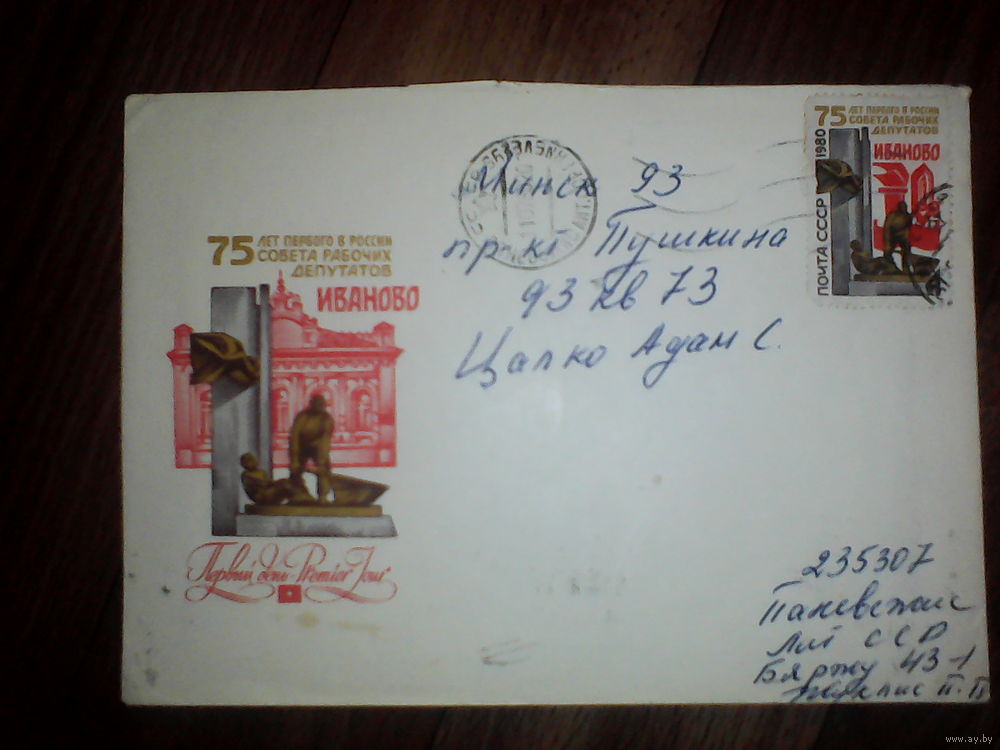 75 ЛЕТ ПЕРВОГО В РОССИИ
СОВЕТА РАБОЧИХ
ДЕПУТАТОВ
ИВАНОВО
Первый день Premier Jour
75 ЛЕТ ПЕРВОГО В РОССИИ
СОВЕТА РАБОЧИХ
ДЕПУТАТОВ
ИВАНОВО
ПОЧТА СССР 1980
Минск 93
пр-кт Пушкина
93 кв 73
Цалко Адам С.
235307
Паневежис
Лит ССР
Бяржу 43-1
П.П
www.ay.by